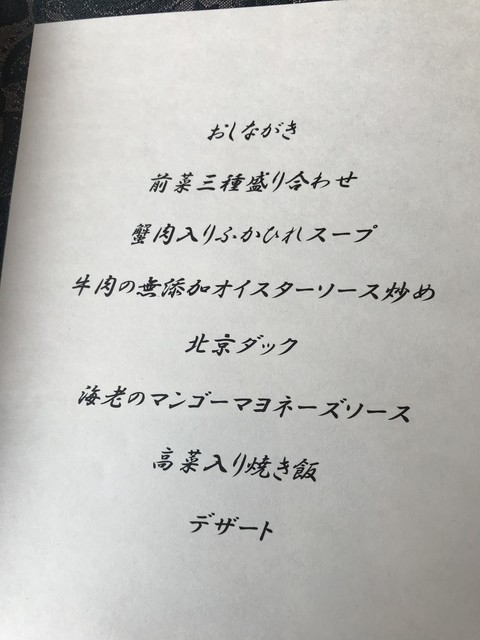 おしながき
前菜三種盛り合わせ
蟹肉入りふかひれスープ
牛肉の無添加オイスターソース炒め
北京ダック
海老のマンゴーマヨネーズソース
高菜入り焼き飯
デザート